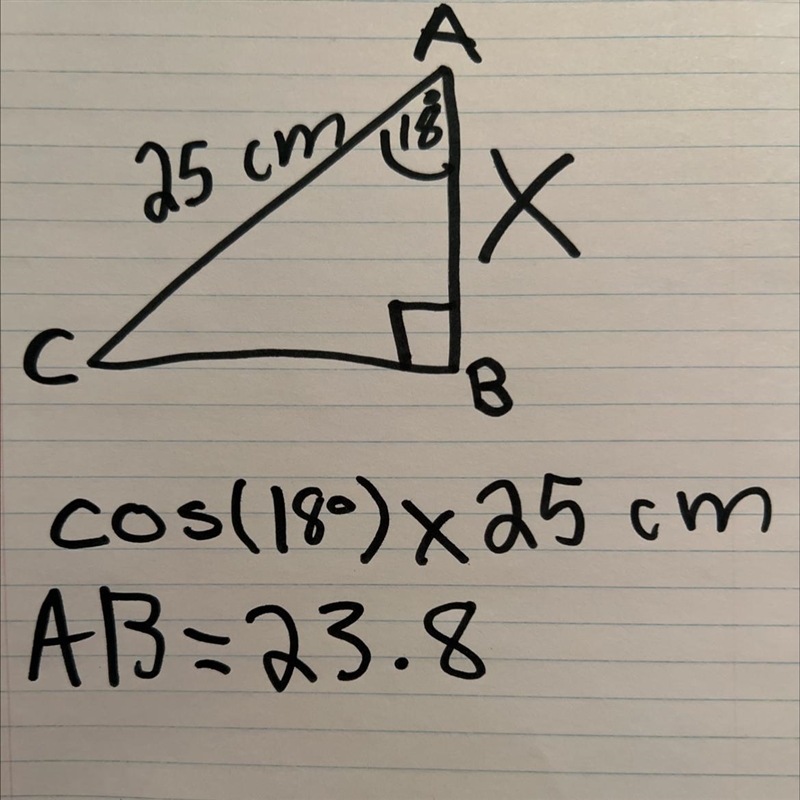 A
18°
25 cm
X
C
B
cos(18°)x25 cm
AB=23.8